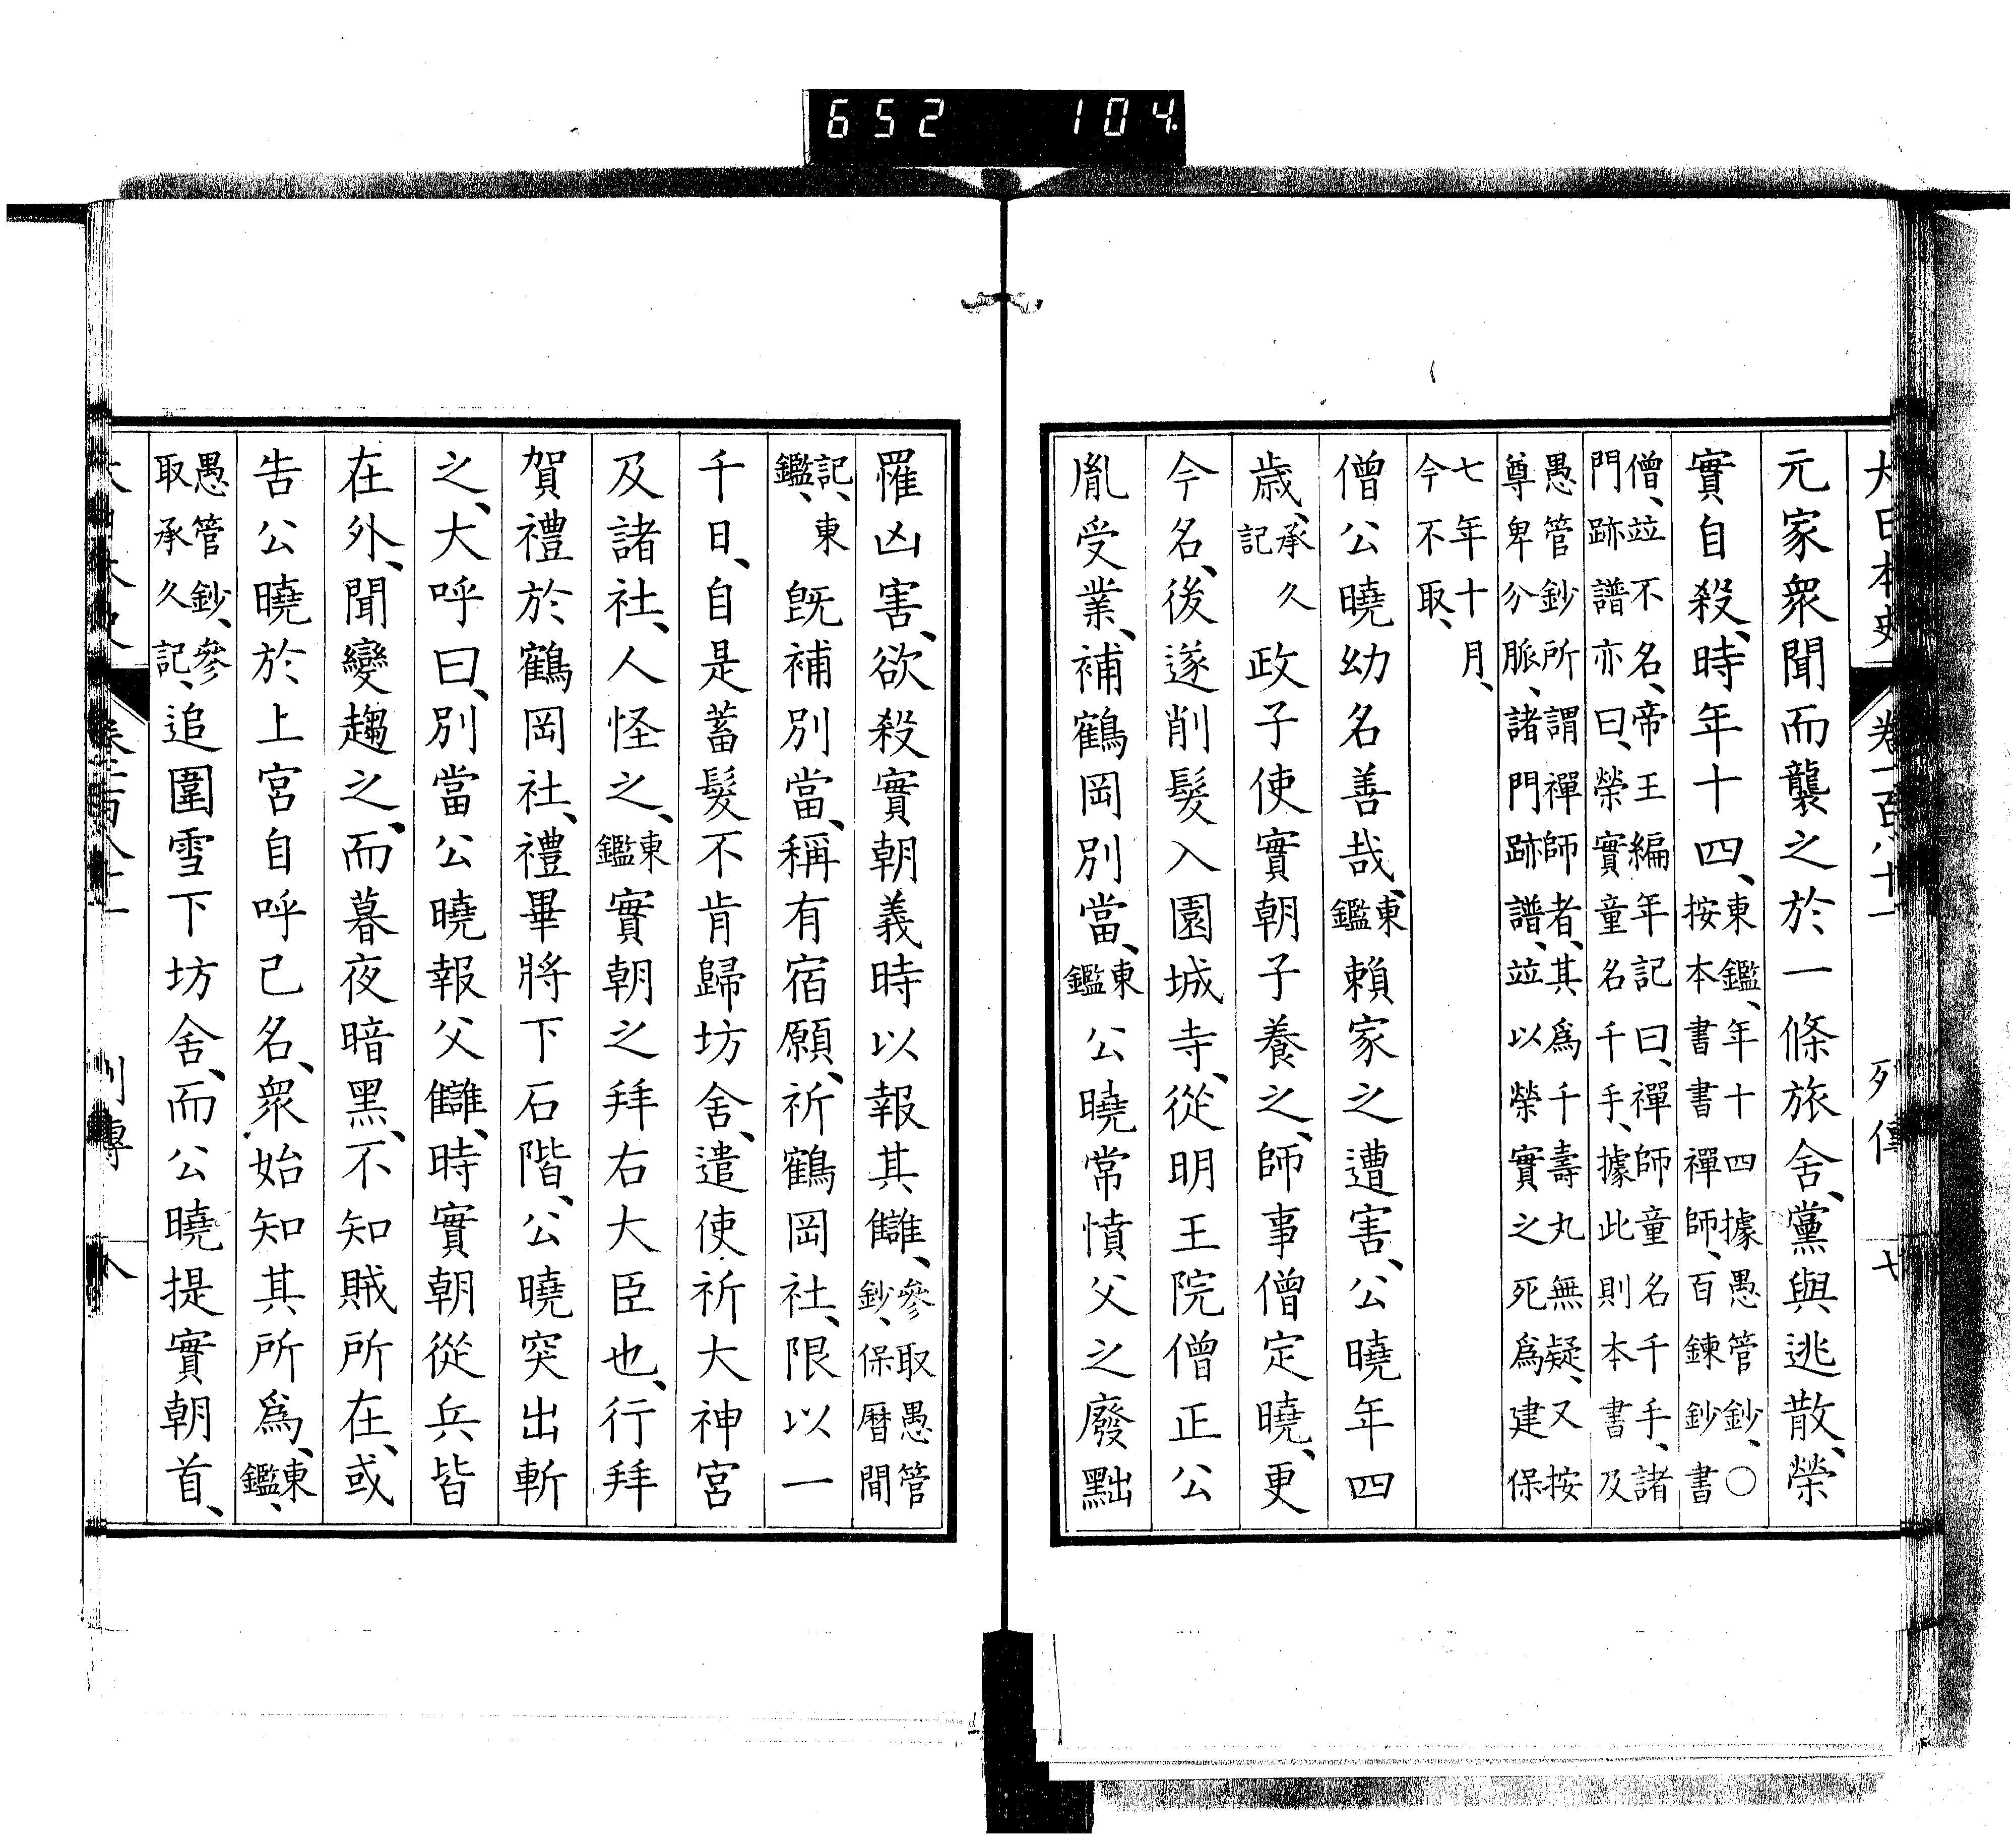 652 104
大日本史 卷一百八十一 列傳 七
元家衆聞而襲之於一條旅舍、黨與逃散、榮
實自殺、時年十四、東鑑、年十四據愚管鈔、〇按本書書禪師、百鍊鈔書
僧、竝不名、帝王編年記曰、禪師童名千手、諸門跡譜亦曰、榮實童名千手、據此則本書及
愚管鈔所謂禪師者、其爲千壽丸無疑、又按尊卑分脈、諸門跡譜、竝以榮實之死爲建保
七年十月、今不取、
僧公曉幼名善哉、東鑑賴家之遭害、公曉年四
歲、承久記政子使實朝子養之、師事僧定曉、更
今名、後遂削髮入園城寺、從明王院僧正公
胤受業、補鶴岡別當、東鑑公曉常憤父之廢黜
罹凶害、欲殺實朝義時以報其讎、參取愚管鈔、保曆間
記、東鑑、既補別當、稱有宿願、祈鶴岡社、限以一
千日、自是蓄髮不肯歸坊舍、遣使祈大神宮
及諸社、人怪之、東鑑實朝之拜右大臣也、行拜
賀禮於鶴岡社、禮畢將下石階、公曉突出斬
之、大呼曰、別當公曉報父讎、時實朝從兵皆
在外、聞變趨之、而暮夜暗黑、不知賊所在、或
告公曉於上宮自呼己名、衆始知其所爲、東鑑、
愚管鈔、參取承久記、追圍雪下坊舍、而公曉提實朝首、
大日本史 卷一百八十一 列傳 八